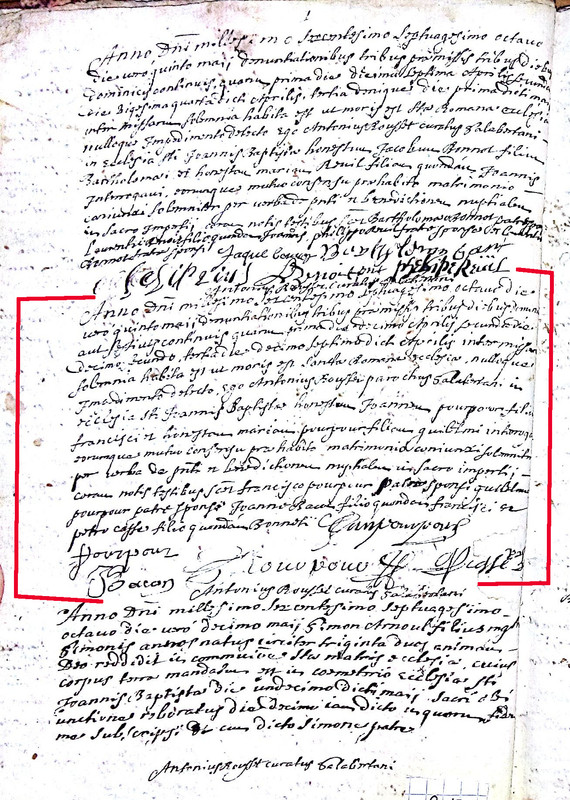 1
Anno Dni millesimo sexcentesimo septuagesimo octavo
die vero quinto maij denunciationibus tribus præmissis tribus diebus
dominicis continuis, quarum prima die decima septima Aprilis, secunda
die vigesima quarta dicti Aprilis, tertia denique die prima dicti maij
inter missarum solemnia habita est ut moris est Stæ Romanæ Ecclesiæ
nulloque Impedimento detecto Ego Antonius Rousset curatus Salabertani
in Ecclesia Sti Joannis Baptistæ honestum Jacobum Bonnet filium
Bartholomæi et honestam mariam Revil filiam quondam Joannis
Interrogavi, eorumque mutuo consensu præhabito matrimonio
coniunxi solemniter per verba de pnti et benedictionem nuptialem
in sacro Imperti, coram notis testibus Bartholomæo Bonnet patre sponsi
Laurentio filio quondam Joannis, philippo fratre sponsæ
fratre sponsi Jaque
Antonius Rousset curatus Salabertani
Anno Dni millesimo sexcentesimo septuagesimo octavo die
vero quinto maij denunciationibus tribus præmissis tribus diebus dominicis
aut festivis continuis quarum prima die decimo Aprilis secunda die
decimo secundo, tertia die decimo septimo dicti Aprilis inter missarum
solemnia habita est ut moris est Sanctæ Romanæ Ecclesiæ, nulloque
Impedimento detecto, Ego Antonius Rousset parochus Salabertani in
ecclesia Sti Joannis Baptistæ honestum Joannem pourpour filium
francisci et honestam mariam pourpour filiam guilelmi interrogavi
eorumque mutuo consensu præhabito matrimonio coniunxi solemniter
per verba de pnti et benedictionem nuptialem in sacro imperti,
coram notis testibus francisco pourpour patre sponsi guilelmo
pourpour patre sponsæ Joanne filio quondam francisci et
petro filio quondam Bonneti
pourpour
Antonius Rousset curatus Salabertani
Anno Dni millesimo sexcentesimo septuagesimo
octavo die vero decimo maij Simon Arnoul filius mgri
Simonis annos natus circiter triginta duos animam
Deo reddidit in communione Stæ matris ecclesiæ, cuius
corpus terræ mandatum est in cœmeterio ecclesiæ Sti
Joannis Baptistæ die undecimo dicti maij, Sacri olei
unctione roboratus die decimo iam dicto in quorum fidem
me subscripsi et cum dicto Simone patre.
Antonius Rousset curatus Salabertani